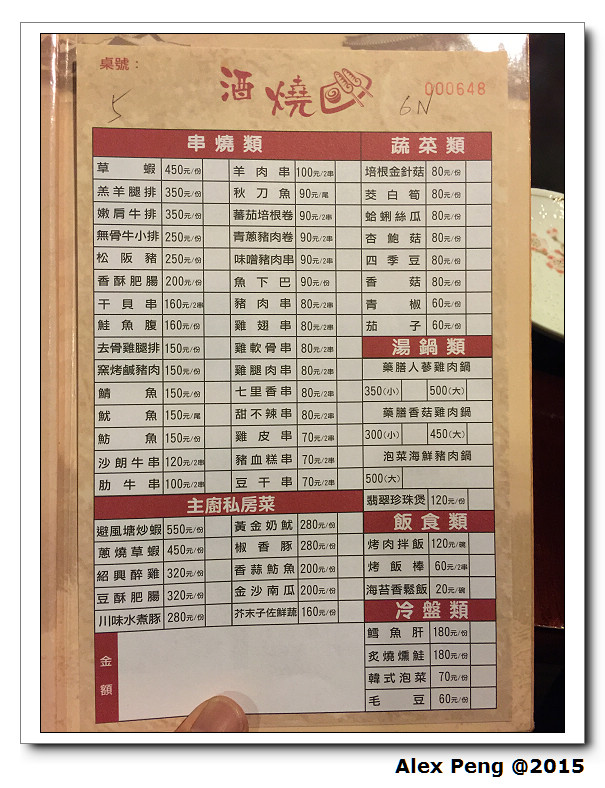 桌號：
5
酒燒
6N
000648
串燒類
草蝦 450元/份
羔羊腿排 350元/份
嫩肩牛排 350元/份
無骨牛小排 250元/份
松阪豬 250元/份
香酥肥腸 200元/份
干貝串 160元/2串
鮭魚腹 160元/份
去骨雞腿排 150元/份
窯烤鹹豬肉 150元/份
鯖魚 150元/份
魷魚 150元/尾
魴魚 150元/份
沙朗牛串 120元/2串
肋牛串 100元/2串
羊肉串 100元/2串
秋刀魚 90元/尾
蕃茄培根卷 90元/2串
青蔥豬肉卷 90元/2串
味噌豬肉串 90元/2串
魚下巴 90元/份
豬肉串 80元/2串
雞翅串 80元/2串
雞軟骨串 80元/2串
雞腿肉串 80元/2串
七里香串 80元/2串
甜不辣串 80元/2串
雞皮串 70元/2串
豬血糕串 70元/2串
豆干串 70元/2串
主廚私房菜
避風塘炒蝦 550元/份
蔥燒草蝦 450元/份
紹興醉雞 320元/份
豆酥肥腸 320元/份
川味水煮豚 280元/份
黃金奶魷 280元/份
椒香豚 280元/份
香蒜魴魚 200元/份
金沙南瓜 200元/份
芥末子佐鮮蔬 160元/份
金額
蔬菜類
培根金針菇 80元/份
茭白筍 80元/份
蛤蜊絲瓜 80元/份
杏鮑菇 80元/份
四季豆 80元/份
香菇 80元/份
青椒 60元/份
茄子 60元/份
湯鍋類
藥膳人蔘雞肉鍋
350(小) 500(大)
藥膳香菇雞肉鍋
300(小) 450(大)
泡菜海鮮豬肉鍋
500(大)
翡翠珍珠煲 120元/份
飯食類
烤肉拌飯 120元/碗
烤飯棒 60元/2串
海苔香鬆飯 20元/碗
冷盤類
鱈魚肝 180元/份
炙燒燻鮭 180元/份
韓式泡菜 70元/份
毛豆 60元/份
Alex Peng @2015